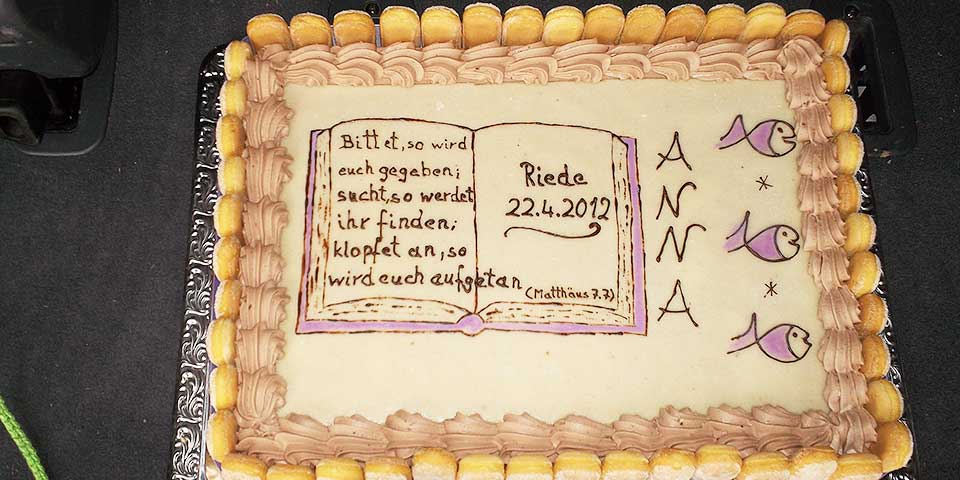 Bittet, so wird
euch gegeben;
sucht, so werdet
ihr finden;
klopfet an, so
wird euch aufgetan
(Matthäus 7.7)
Riede
22.4.2012
ANNA